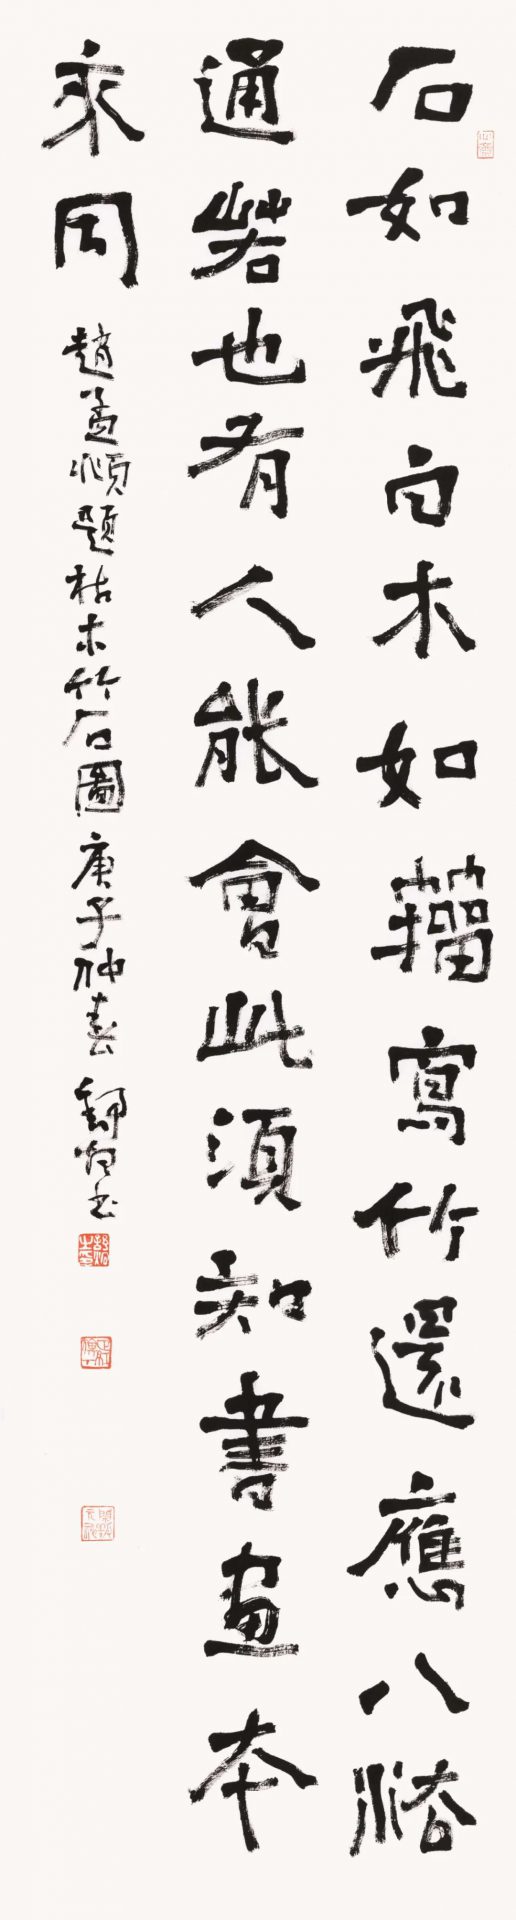 石如飛白木如籀寫竹還應八法
通若也有人能會此須知書畫本
來同
趙孟頫題枯木竹石圖庚子仲春 书